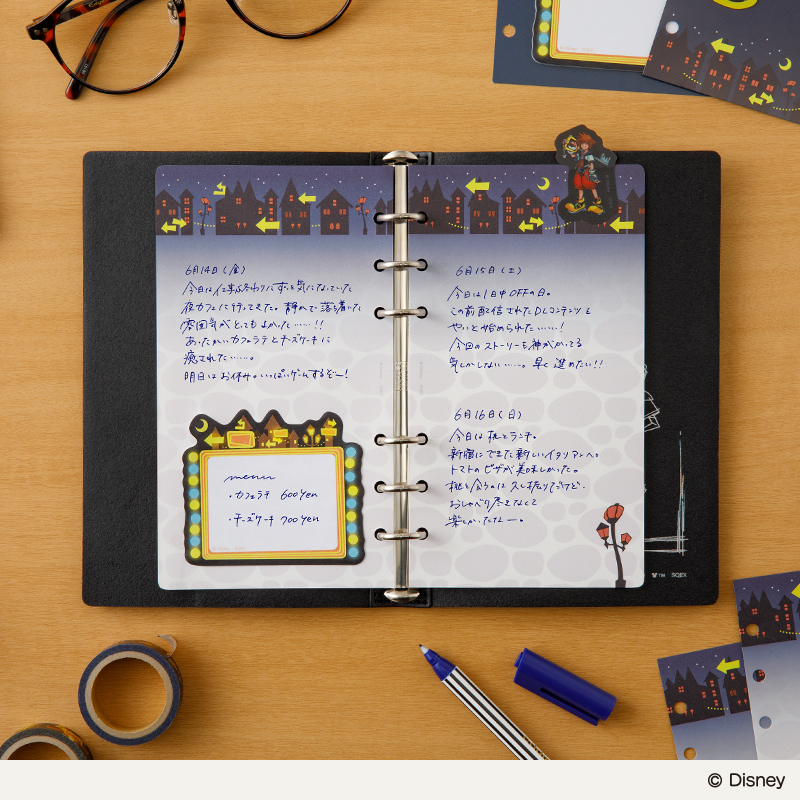 6月14日(金)
今日は仕事終わりにずっと気になっていた
夜カフェに行ってきた。静かで落ち着いた
雰囲気がとてもよかった……!!
あったかいカフェラテとチーズケーキに
癒された……。
明日はお休み。いっぱいゲームするぞー!
menu
・カフェラテ 600yen
・チーズケーキ 700yen
6月15日(土)
今日は1日中OFFの日。
この前配信されたDLコンテンツを
やっと始められた……!
今回のストーリーも神がかってる
気しかしない……。早く進めたい!!
6月16日(日)
今日は桃とランチ。
新宿にできた新しいイタリアンへ。
トマトのピザが美味しかった。
桃と会うのは久し振りだけど、
おしゃべり尽きなくて
楽しかったなー。
TM SQEX
© Disney